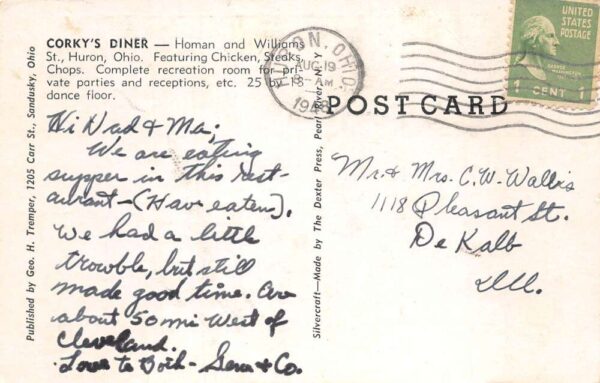 CORKY'S DINER — Homan and Williams
St., Huron, Ohio. Featuring Chicken, Steaks,
Chops. Complete recreation room for pri-
vate parties and receptions, etc. 25 by 18
dance floor.
Hi Dad & Ma;
We are eating
supper in this rest-
aurant - (Have eaten).
We had a little
trowble, but still
made good time. Are
about 50 mi West of
Cleveland.
Love to Both - & Co.
Published by Geo. H. Tremper, 1205 Carr St., Sandusky, Ohio
Silvercraft—Made by The Dexter Press, Pearl River, N Y
HURON, OHIO.
AUG 19
8 - AM
1948
UNITED
STATES
POSTAGE
GEORGE
WASHINGTON
1 CENT 1
POST CARD
Mr. & Mrs. C.W. Wallis
1118 Pleasant St.
De Kalb
Ill.